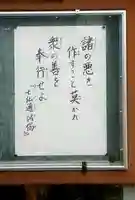 諸の悪を
作すこと莫かれ
衆の善を
奉行せよ
「七仏通誡偈」